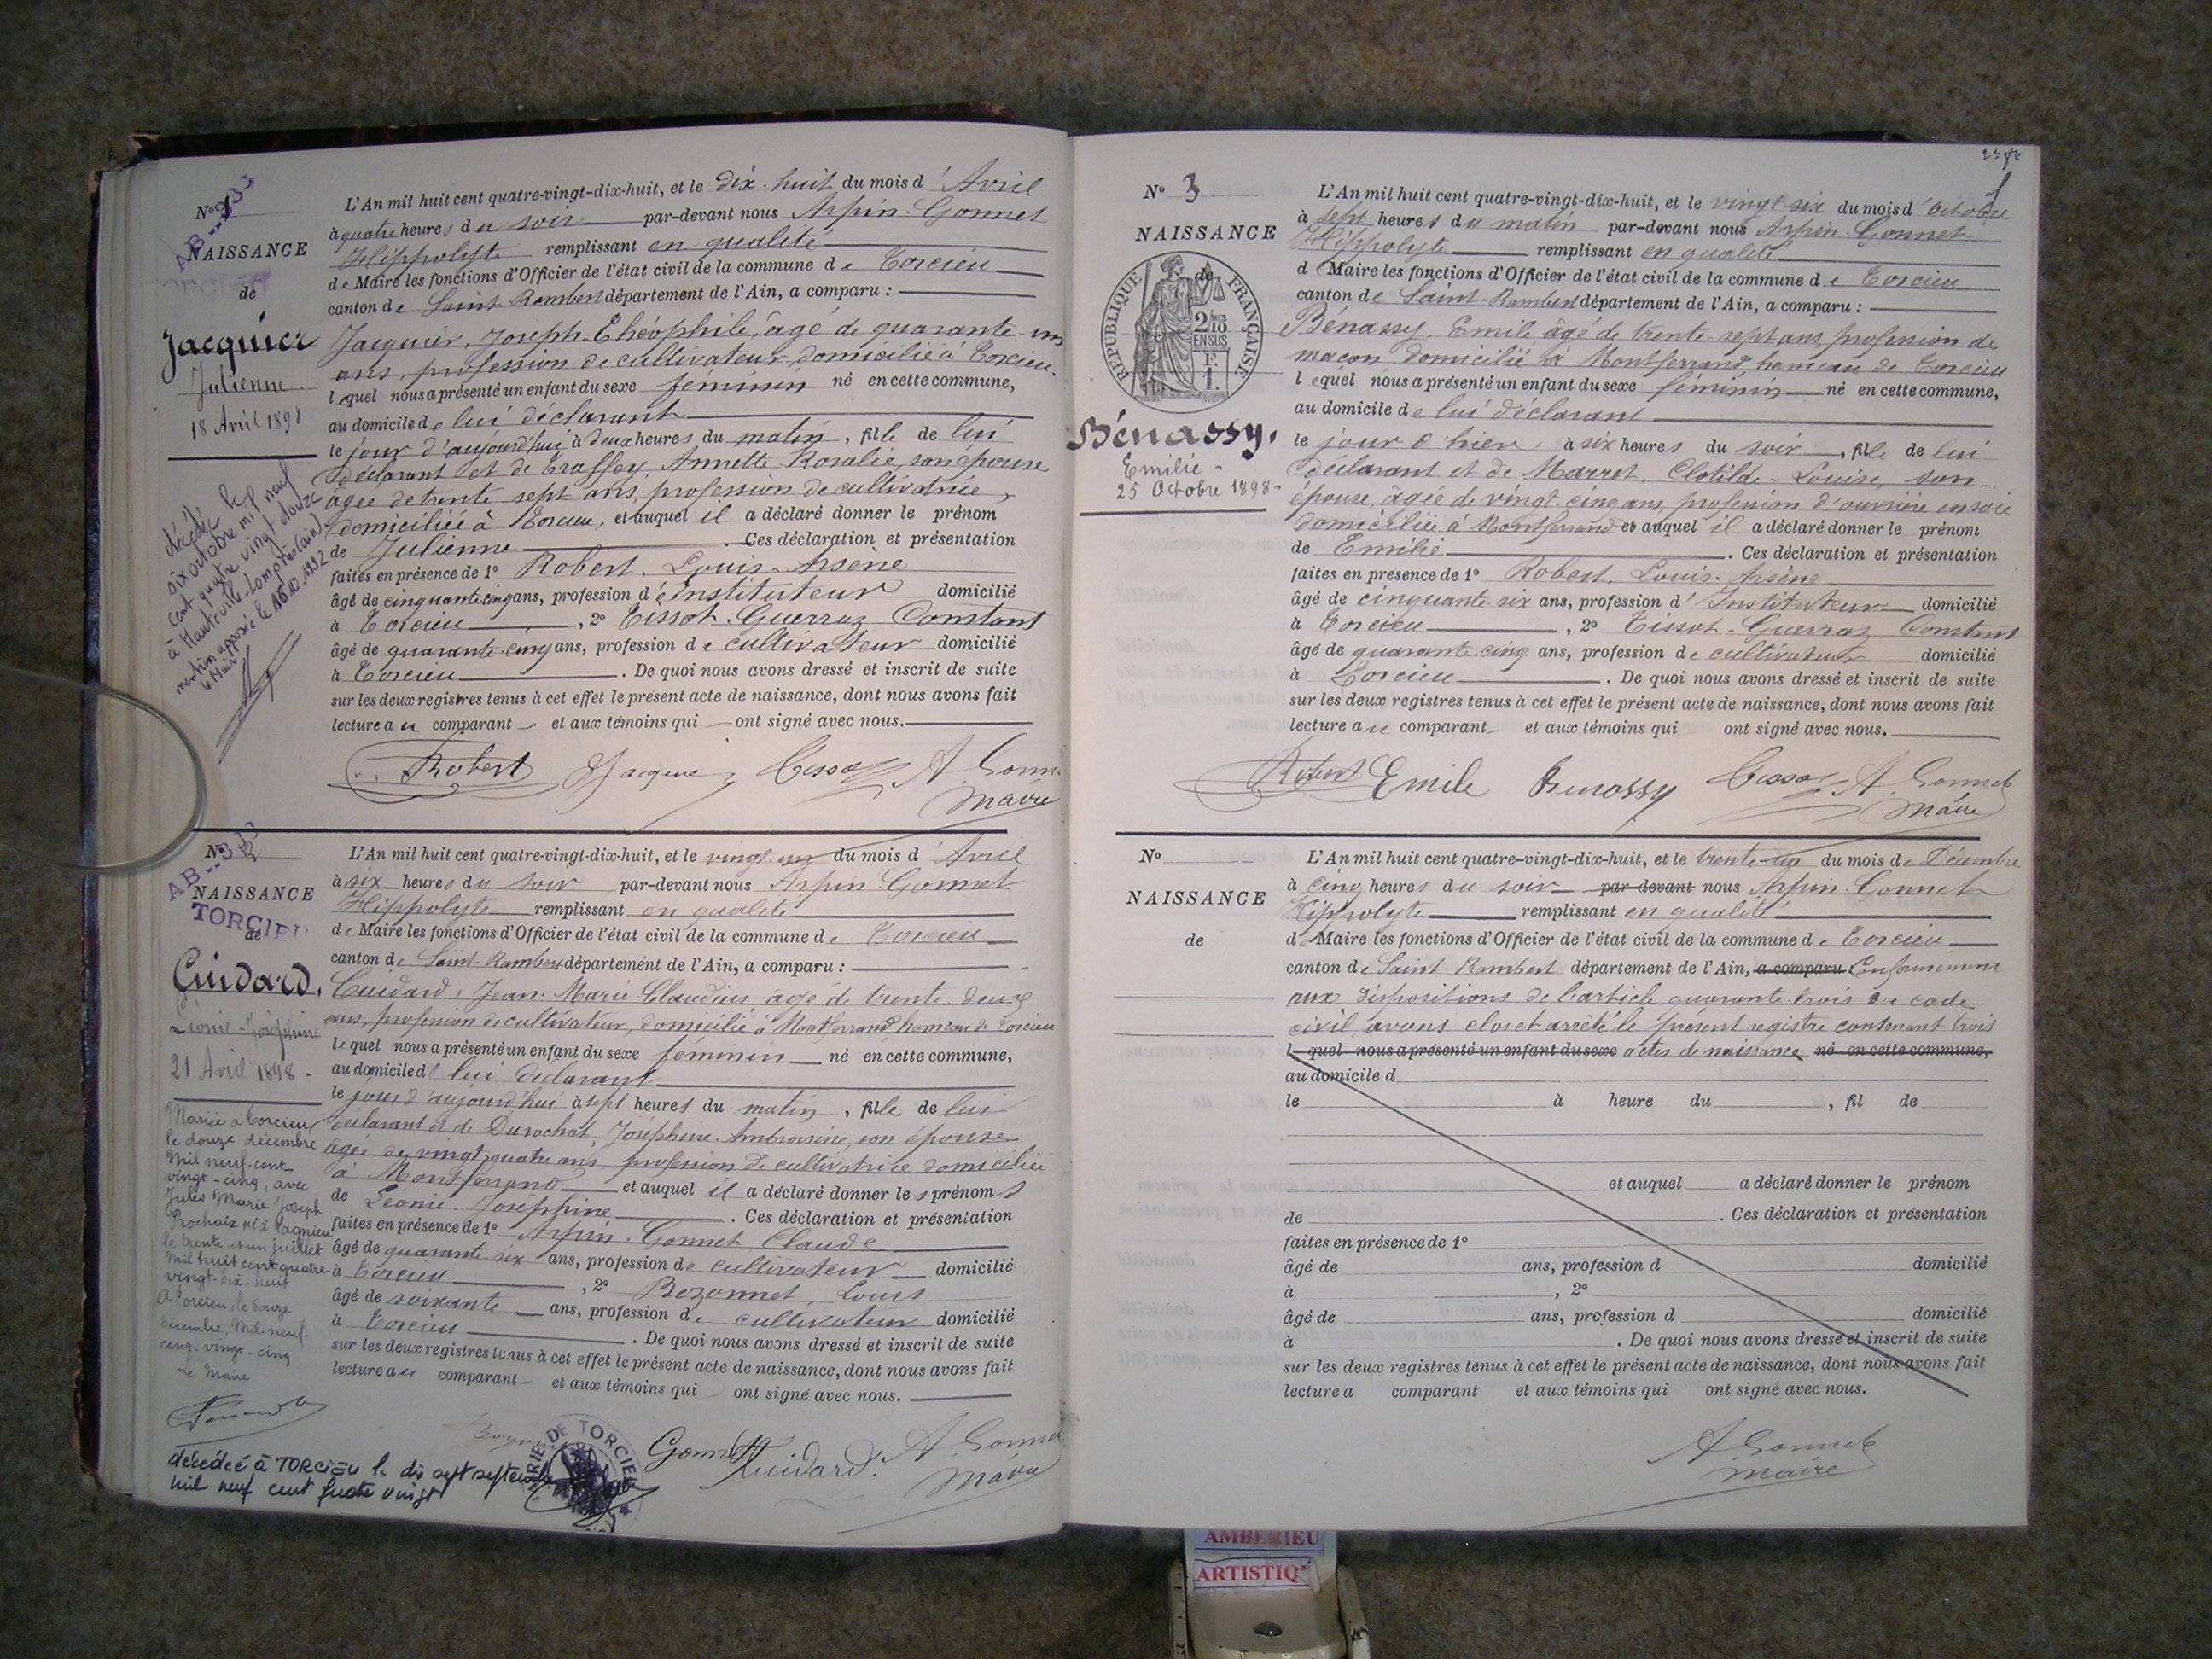 N° 1
AB--33
NAISSANCE
de
Jacquier
Julienne
18 Avril 1898
décédée le
six octobre mil neuf
cent quatre vingt douze
à Hauteville-Lompnes (Ain)
mention apposée le 16.10.1992
le Maire
L'An mil huit cent quatre-vingt-dix-huit, et le dix-huit du mois d'Avril
à quatre heures du soir par-devant nous Arpin-Gonnet
Hippolyte remplissant en qualité
de Maire les fonctions d'Officier de l'état civil de la commune de Torcieu
canton de Saint-Rambert département de l'Ain, a comparu :
Jacquier, Joseph-Théophile, âgé de quarante-un
ans, profession de cultivateur, domicilié à Torcieu.
lequel nous a présenté un enfant du sexe féminin né en cette commune,
au domicile de lui déclarant
le jour d'aujourd'hui, à deux heures du matin, fille de lui
déclarant et de Annette Rosalie, son épouse
âgée de trente sept ans, profession de cultivatrice,
domiciliée à Torcieu, et auquel il a déclaré donner le prénom
de Julienne. Ces déclaration et présentation
faites en présence de 1° Robert, Louis-Arsène
âgé de cinquante cinq ans, profession d'Instituteur domicilié
à Torcieu, 2° Tissot-Guerraz Constant
âgé de quarante-cinq ans, profession de cultivateur domicilié
à Torcieu. De quoi nous avons dressé et inscrit de suite
sur les deux registres tenus à cet effet le présent acte de naissance, dont nous avons fait
lecture au comparant et aux témoins qui ont signé avec nous.
Robert Jacquier Tissot A. Gonnet
Maire
N° 2
AB--33
NAISSANCE
TORCIEU
de
Cuidard,
Léonie-Joséphine
21 Avril 1898
Mariée à Torcieu
le douze décembre
Mil neuf cent
vingt-cinq, avec
Jules Marie Joseph
Prochaix né à Lagnieu
le trente et un juillet
Mil huit cent quatre
vingt-dix-huit
A Torcieu, le douze
décembre, Mil-neuf-
cent-vingt-cinq
Le Maire
décédée à TORCIEU le dix sept septembre
mil neuf cent quatre vingt
L'An mil huit cent quatre-vingt-dix-huit, et le vingt-un du mois d'Avril
à six heures du soir par-devant nous Arpin-Gonnet
Hippolyte remplissant en qualité
de Maire les fonctions d'Officier de l'état civil de la commune de Torcieu
canton de Saint-Rambert département de l'Ain, a comparu :
Cuidard, Jean-Marie Claudius âgé de trente-deux
ans, profession de cultivateur, domicilié à Montferrand hameau de Torcieu
lequel nous a présenté un enfant du sexe féminin né en cette commune,
au domicile de lui déclarant
le jour d'aujourd'hui à sept heures du matin, fille de lui
déclarant et de Durochat, Joséphine-Ambroisine, son épouse
âgée de vingt quatre ans, profession de cultivatrice domiciliée
à Montferrand et auquel il a déclaré donner les prénoms
de Léonie-Joséphine. Ces déclaration et présentation
faites en présence de 1° Arpin-Gonnet, Claude
âgé de quarante-six ans, profession de cultivateur domicilié
à Torcieu, 2° Bozonnet, Louis
âgé de soixante ans, profession de cultivateur domicilié
à Torcieu. De quoi nous avons dressé et inscrit de suite
sur les deux registres tenus à cet effet le présent acte de naissance, dont nous avons fait
lecture au comparant et aux témoins qui ont signé avec nous.
MAIRIE DE TORCIEU
Gonnet Cuidard A. Gonnet
Maire
N° 3
NAISSANCE
de
RÉPUBLIQUE FRANÇAISE
2/10
EN SUS
Bénassy,
Emilie
25 Octobre 1898
L'An mil huit cent quatre-vingt-dix-huit, et le vingt-six du mois d'Octobre
à sept heures du matin par-devant nous Arpin-Gonnet
Hippolyte remplissant en qualité
de Maire les fonctions d'Officier de l'état civil de la commune de Torcieu
canton de Saint-Rambert département de l'Ain, a comparu :
Bénassy, Emile, âgé de trente-sept ans, profession de
maçon domicilié à Montferrand, hameau de Torcieu
lequel nous a présenté un enfant du sexe féminin né en cette commune,
au domicile de lui déclarant
le jour d'hier, à six heures du soir, fille de lui
déclarant et de Marret, Clotilde-Louise, son
épouse, âgée de vingt-cinq ans, profession d'ouvrière en soie
domiciliée à Montferrand et auquel il a déclaré donner le prénom
de Emilie. Ces déclaration et présentation
faites en présence de 1° Robert, Louis-Arsène
âgé de cinquante-six ans, profession d'Instituteur domicilié
à Torcieu, 2° Tissot-Guerraz Constant
âgé de quarante-cinq ans, profession de cultivateur domicilié
à Torcieu. De quoi nous avons dressé et inscrit de suite
sur les deux registres tenus à cet effet le présent acte de naissance, dont nous avons fait
lecture au comparant et aux témoins qui ont signé avec nous.
Robert Emile Benassy Tissot A. Gonnet
Maire
N°
NAISSANCE
de
L'An mil huit cent quatre-vingt-dix-huit, et le trente-un du mois de Décembre
à cinq heures du soir par-devant nous Arpin-Gonnet
Hippolyte remplissant en qualité
de Maire les fonctions d'Officier de l'état civil de la commune de Torcieu
canton de Saint-Rambert département de l'Ain, a comparu Conformément
aux dispositions de l'article quarante-trois du code
civil avons clos et arrêté le présent registre contenant trois
l quel nous a présenté un enfant du sexe actes de naissance né en cette commune,
au domicile d
le à heure du , fil de
et auquel a déclaré donner le prénom
de . Ces déclaration et présentation
faites en présence de 1°
âgé de ans, profession d domicilié
à , 2°
âgé de ans, profession d domicilié
à . De quoi nous avons dressé et inscrit de suite
sur les deux registres tenus à cet effet le présent acte de naissance, dont nous avons fait
lecture a comparant et aux témoins qui ont signé avec nous.
A Gonnet
maire
AMBERIEU
ARTISTIQ